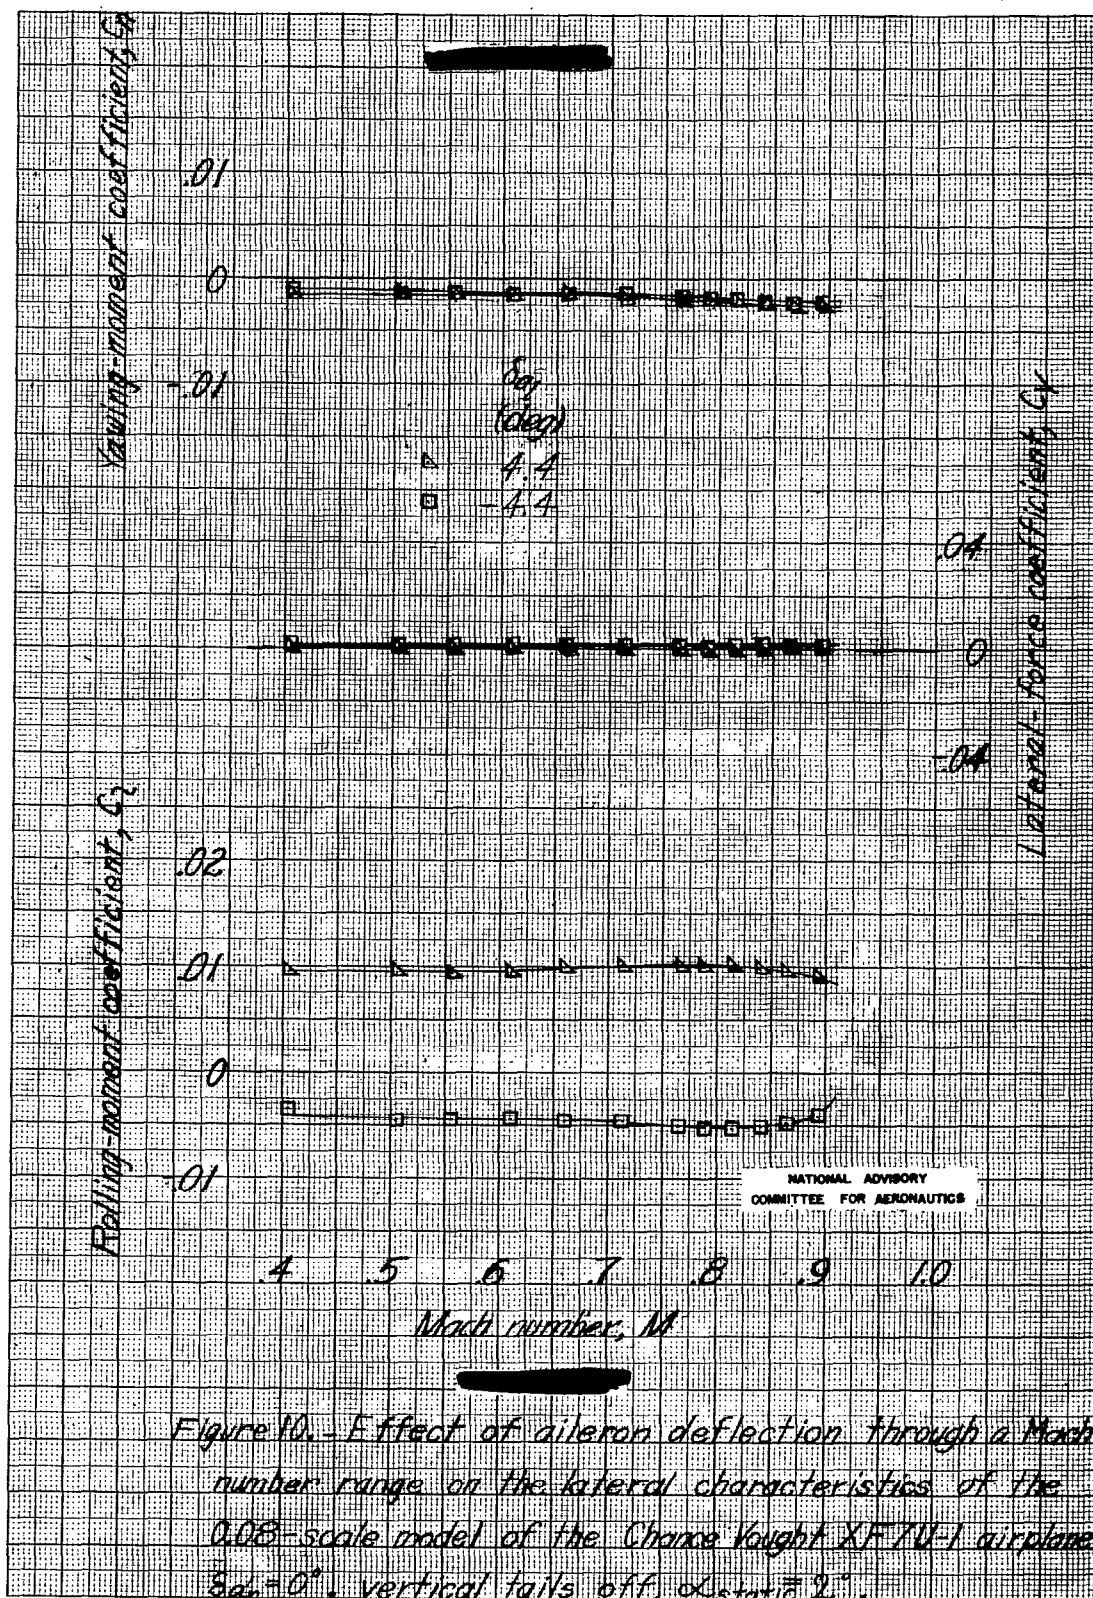 Yawing-moment coefficient, Cn
.01
0
-.01
δa,
(deg)
4.4
-4.4
Lateral-force coefficient, CY
.04
0
-.04
Rolling-moment coefficient, Cl
.02
.01
0
-.01
NATIONAL ADVISORY
COMMITTEE FOR AERONAUTICS
.4 .5 .6 .7 .8 .9 1.0
Mach number, M
Figure 10.- Effect of aileron deflection through a Mach
number range on the lateral characteristics of the
0.08-scale model of the Chance Vought XF7U-1 airplane
= 0°, vertical tails off, αstatic = 2°.